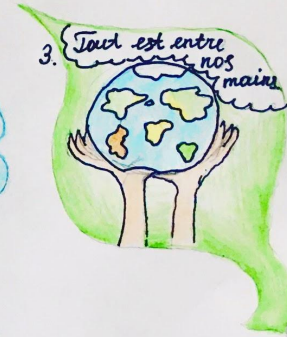 3. Tout est entre
nos
mains